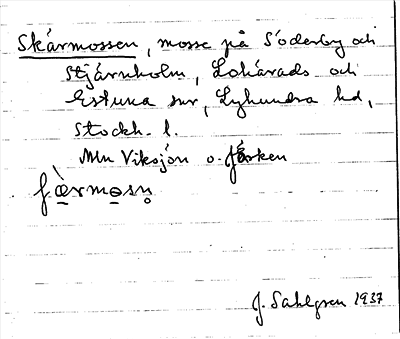 Skärmossen, mosse på Söderby och
Stjärnholm, Lohärads och
Estuna snr, Lyhundra hd,
Stockh. l.
Mln Viksjön o. Järken
J. Sahlgren 1937